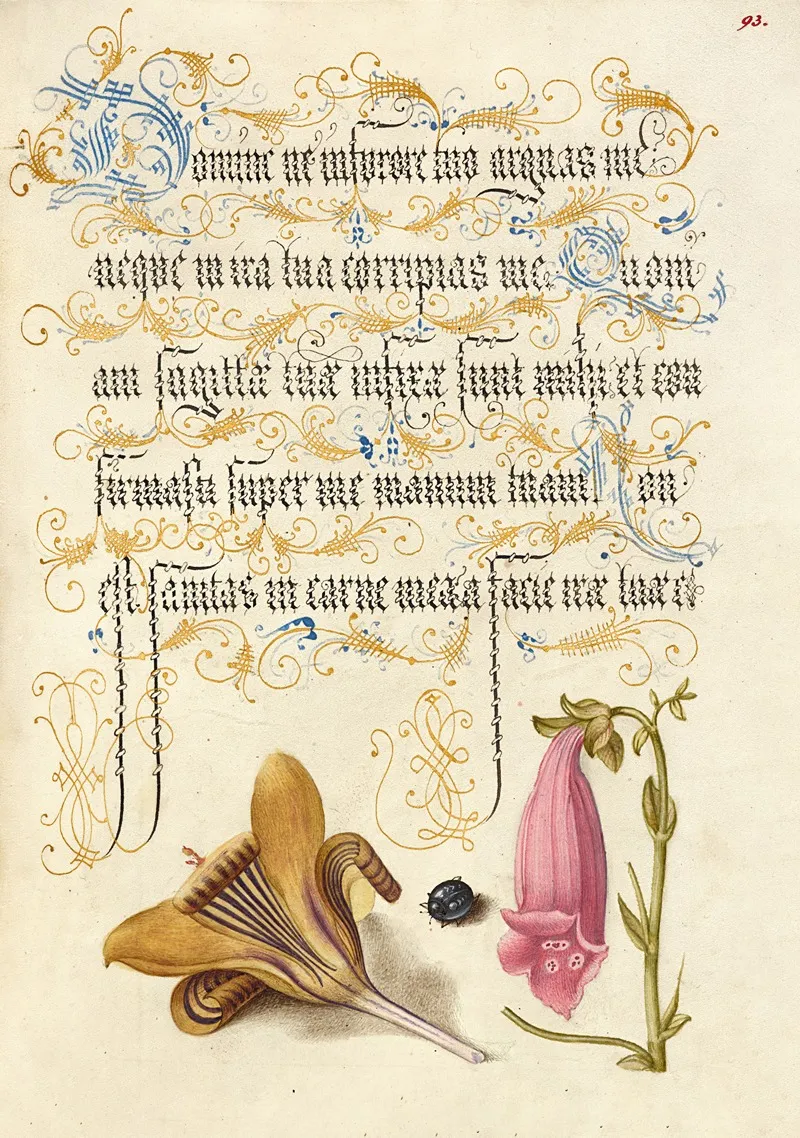 93.
Domine ne in furore tuo arguas me
neque in ira tua corripias me. Quoni
am sagittæ tuæ infixæ sunt mihi et con
firmasti super me manum tuam Non
est sanitas in carne mea a facie iræ tuæ